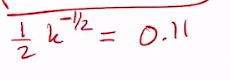 1/2 k^{-1/2} = 0.11